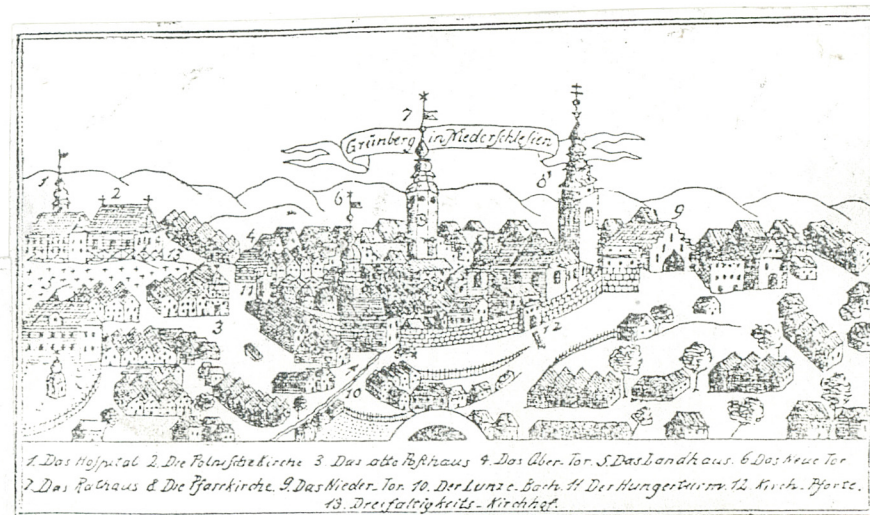 Grünberg in Niederschlesien
7
1
2
6
8
9
4
13
5
11
3
12
10
1. Das Hospital 2. Die Polnische Kirche 3. Das alte Posthaus 4. Das Ober-Tor. 5. Das Landhaus. 6. Das Neue Tor
7. Das Rathaus 8. Die Pfarrkirche. 9. Das Nieder-Tor. 10. Der Lunze-Bach. 11 Der Hungerturm. 12. Kirch-Pforte.
13. Dreifaltigkeits-Kirchhof.